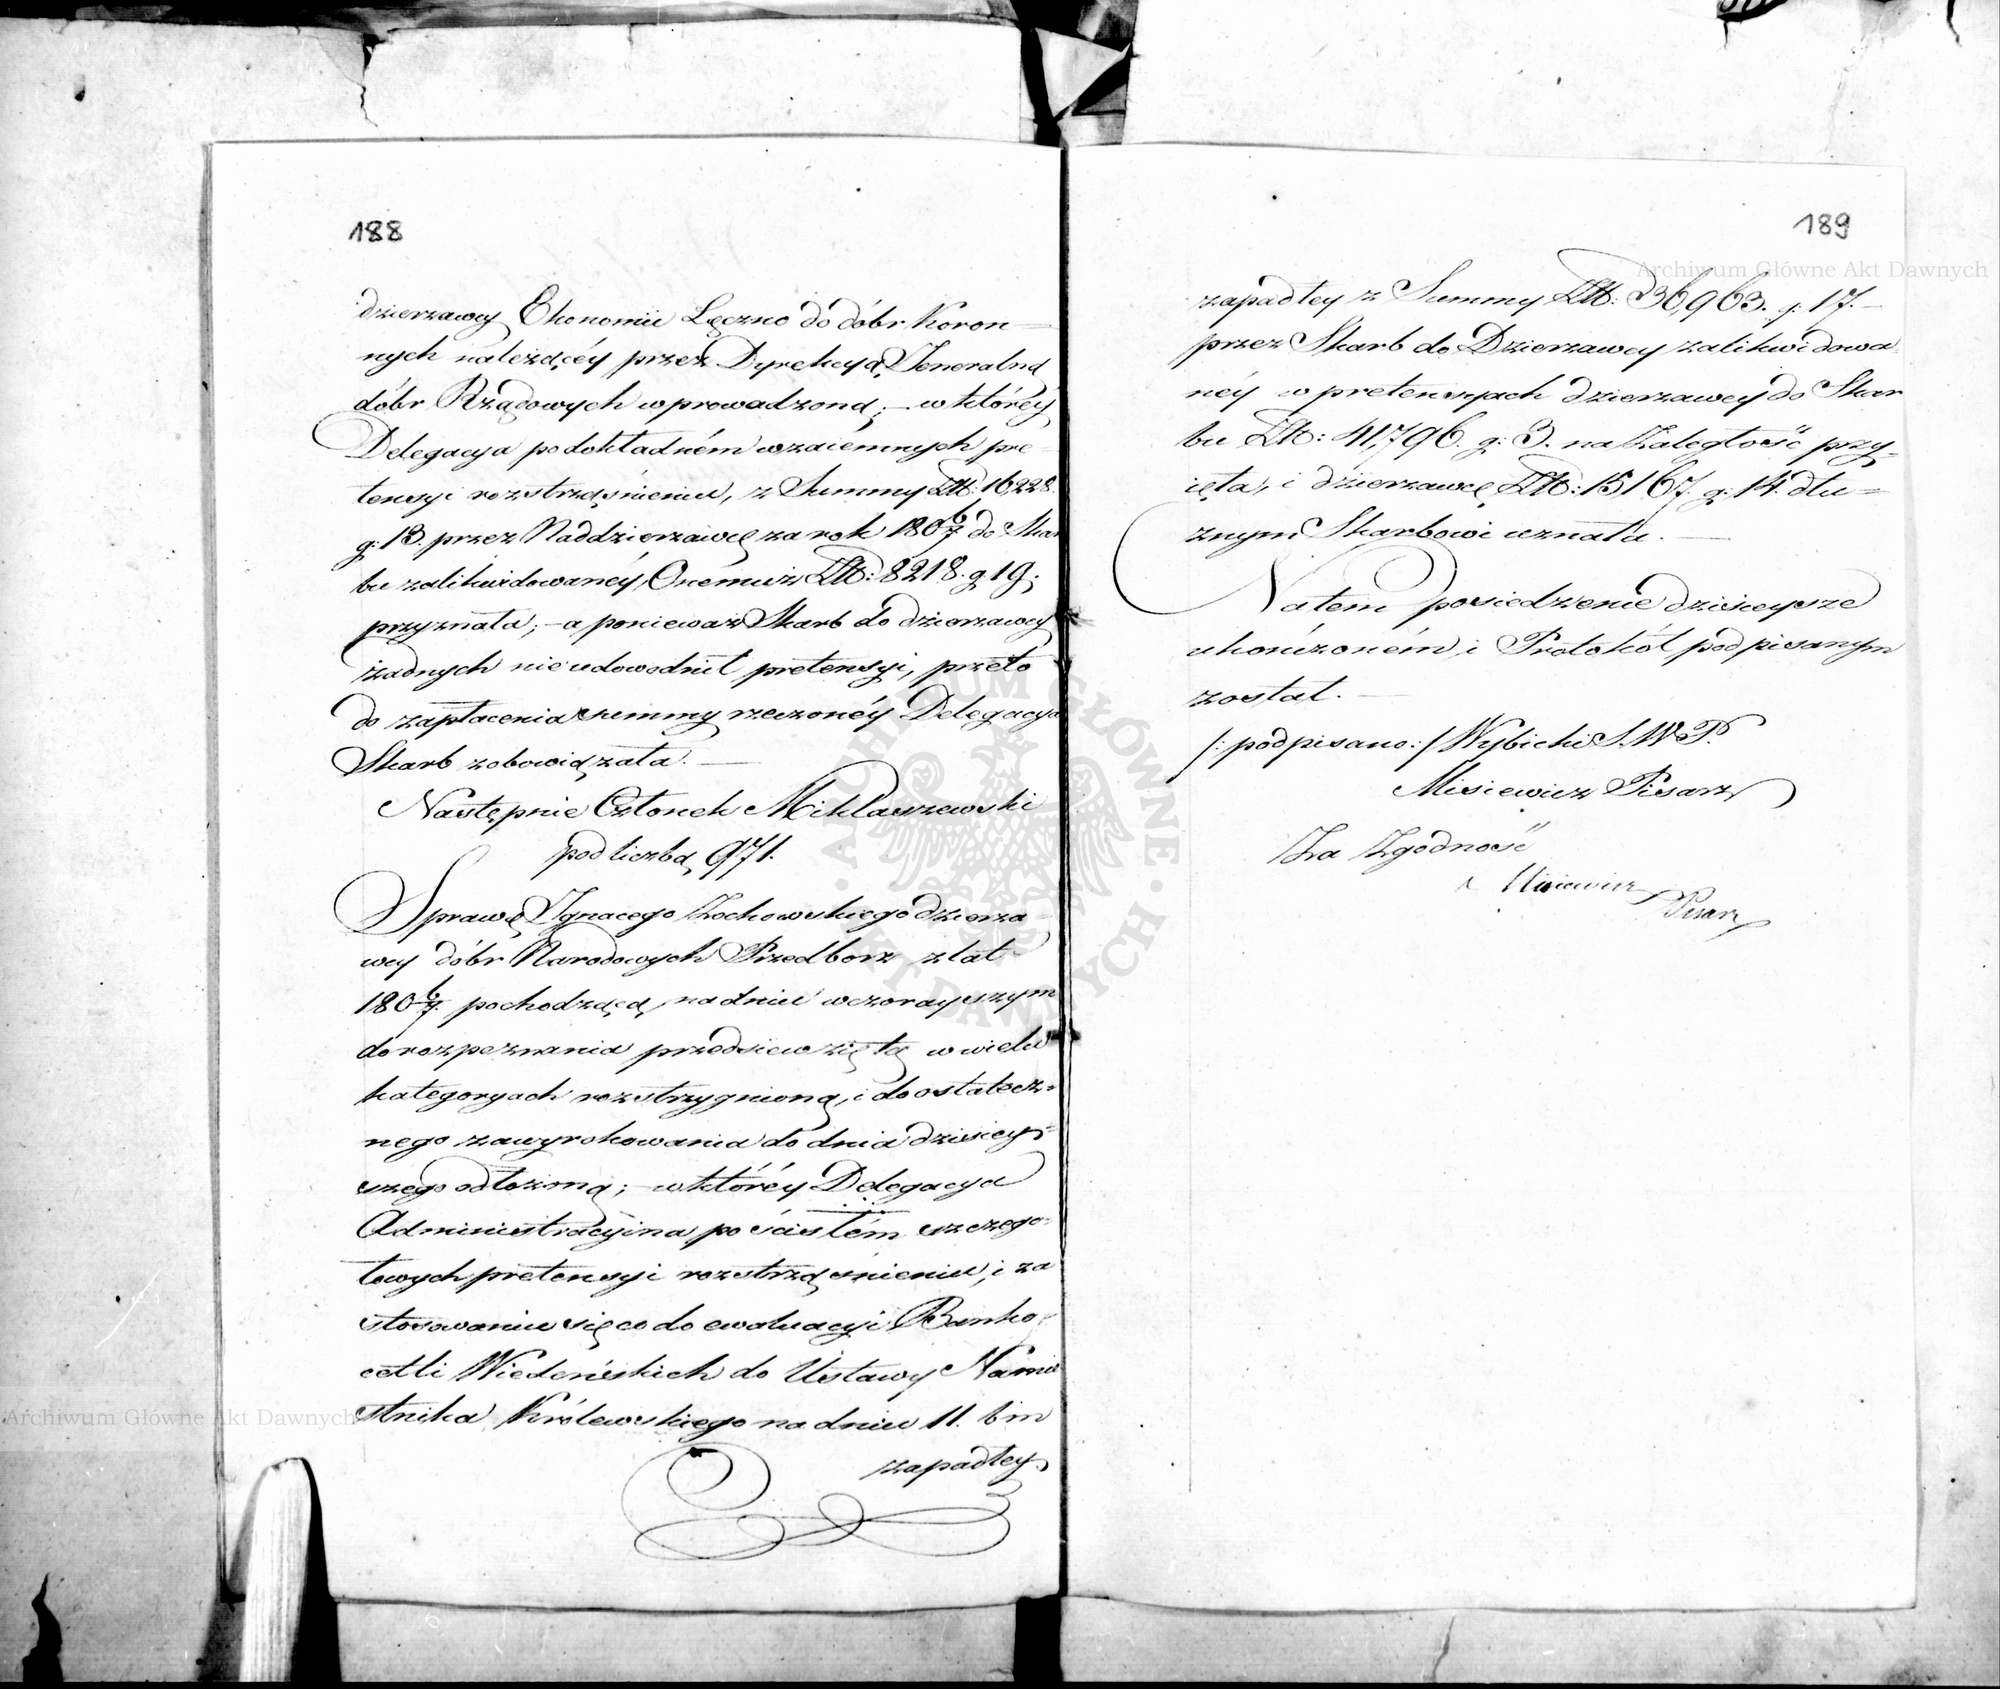 188
dzierzawcy Ekonomii Łęczno do dóbr Koron-
nych należącéy przez Dyrekcyą Jeneralną
dóbr Rządowych wprowadzoną; – w któréy
Delegacya po dokładném wzaiemnych pre-
tensyi roztrząśnieniu, z Summy Złt: 16,228.
g: 13. przez Naddzierzawcę za rok 180 6/7. do Skar
bu zalikwidowanéy, Onemuż Złt: 8218. g. 19;
przyznała; – a poniewaz Skarb do dzierzawcy
żadnych nie udowodnił pretensyi, przeto
do zapłacenia summy rzeczonéy Delegacya
Skarb zobowiązała. —
Następnie Członek Miklaszewski
pod liczbą 971.
Sprawę Ignacego Zochowskiego dzierza
wcy dóbr Narodowych Przedborz z lat
180 6/7. pochodzącą, na dniu wczorayszym
do rozpoznania przedsiewziętą w wielu
kategoryach rozstrzygnioną, i do ostatecz=
nego zawyrokowania do dnia dzisiey=
szego odłożoną; – w któréy Delegacya
Administracyina po ścisłém szczegó=
łowych pretensyi roztrząśnieniu, i za
stosowaniu się co do ewaluacyi Banko=
cetli Wiedeńskich do Ustawy Namie
stnika Królewskiego na dniu 11. b m
zapadłey
189
zapadłey z Summy Złt: 36,963. g: 17. –
przez Skarb do Dzierzawcy zalikwidowa=
néy w pretensyach dzierzawcy do Skar
bu Złt: 41,796. g: 3. na Zaległość przy=
ięła, i dzierzawcę Złt: 15,167. g: 14. dłu=
znym Skarbowi uznała. —
Na tem posiedzenie dzisieysze
ukończoném, i Protokół podpisanym
został. —
/: podpisano: / Wybicki S. W. P.
Misiewicz Pisarz
Za Zgodność
Misiewicz
Pisarz
Archiwum Główne Akt Dawnych
Archiwum Główne Akt Dawnych
ARCHIWUM GŁÓWNE AKT DAWNYCH